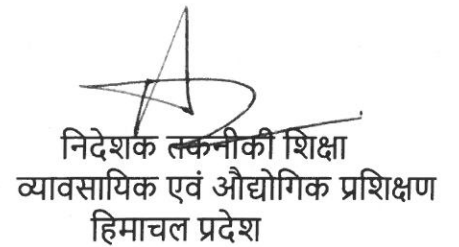 निदेशक तकनीकी शिक्षा
व्यावसायिक एवं औद्योगिक प्रशिक्षण
हिमाचल प्रदेश